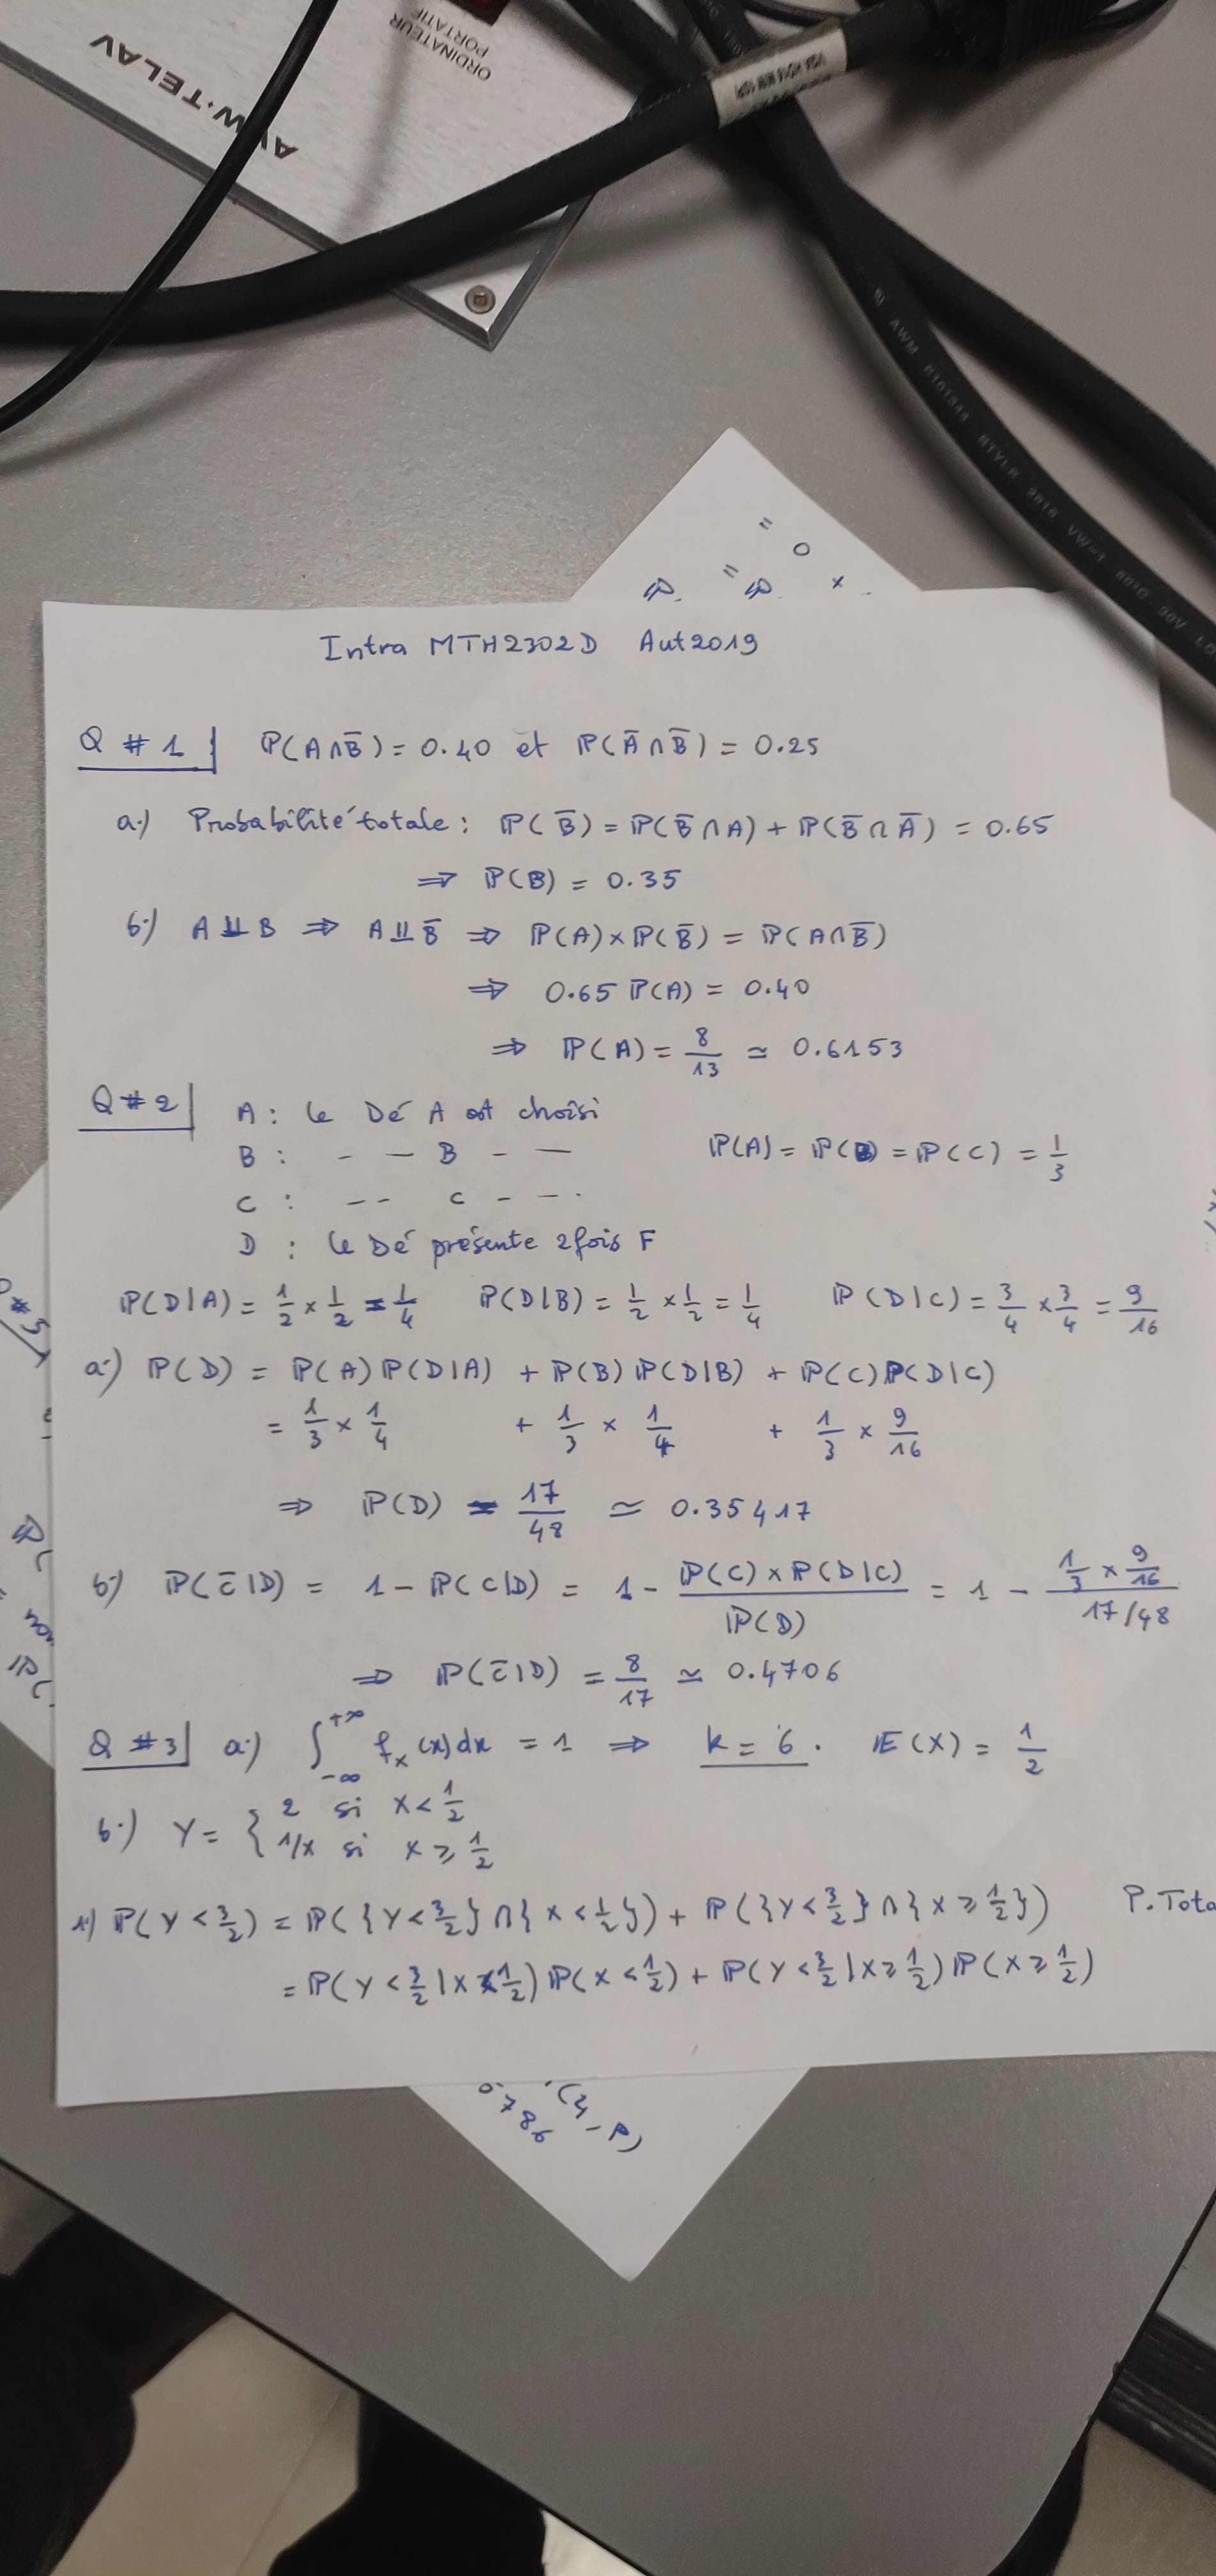 ORDINATEUR
PORTATIF
AVW·TELAV
AWM STYLE VW-1
Intra MTH2302D Aut2019
Q # 1 P(A∩B̄) = 0.40 et P(Ā∩B̄) = 0.25
a.) Probabilité totale : P(B̄) = P(B̄∩A) + P(B̄∩Ā) = 0.65
⇒ P(B) = 0.35
b.) A⫫B ⇒ A⫫B̄ ⇒ P(A)×P(B̄) = P(A∩B̄)
⇒ 0.65 P(A) = 0.40
⇒ P(A) = 8/13 ≃ 0.6153
Q # 2 A : le Dé A est choisi
B : - — B - — P(A) = P(B) = P(C) = 1/3
C : -- C - —.
D : le Dé présente 2 fois F
P(D|A) = 1/2 × 1/2 = 1/4 P(D|B) = 1/2 × 1/2 = 1/4 P(D|C) = 3/4 × 3/4 = 9/16
a.) P(D) = P(A)P(D|A) + P(B)P(D|B) + P(C)P(D|C)
= 1/3 × 1/4 + 1/3 × 1/4 + 1/3 × 9/16
⇒ P(D) = 17/48 ≃ 0.35417
b.) P(C̄|D) = 1 - P(C|D) = 1 - P(C)×P(D|C)/P(D) = 1 - (1/3 × 9/16)/(17/48)
⇒ P(C̄|D) = 8/17 ≃ 0.4706
Q # 3 a.) ∫_{-∞}^{+∞} f_x(x)dx = 1 ⇒ k = 6. E(X) = 1/2
b.) Y = { 2 si X < 1/2
1/X si X ≥ 1/2
1.) P(Y < 3/2) = P({Y < 3/2} ∩ {X < 1/2}) + P({Y < 3/2} ∩ {X ≥ 1/2}) P. Tota
= P(Y < 3/2 | X < 1/2) P(X < 1/2) + P(Y < 3/2 | X ≥ 1/2) P(X ≥ 1/2)